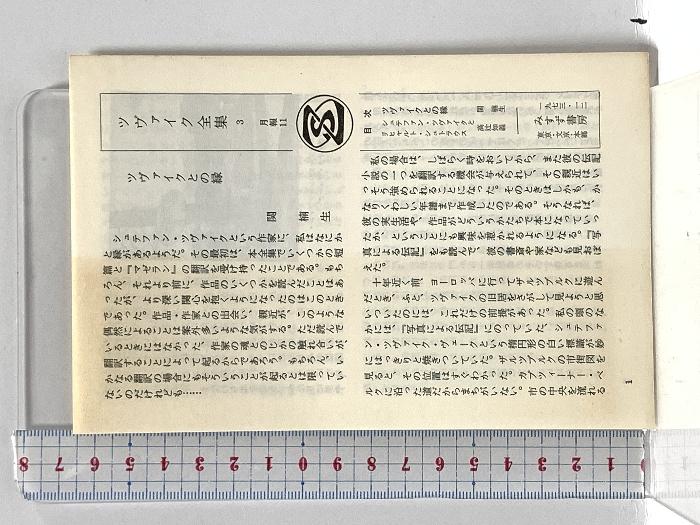 ツヴァイク全集 3
月報11
一九七三・一二
みすず書房
東京・文京・本郷
目次
ツヴァイクとの縁 関楠生
シュテファン・ツヴァイクと
リヒャルト・シュトラウス 高辻知義
ツヴァイクとの縁
関楠生
シュテファン・ツヴァイクという作家に、私はなにか
と縁があるようだ。その最初は、本全集でいくつかの短
篇と『マゼラン』の翻訳を受け持ったことである。もち
ろん、それより前に、作品のいくつかを読んだことはあ
ったが、より深い関心を抱くようになったのはこのとき
であった。作品・作家との出会い、親近が、このような
偶然によることは案外多いような気がする。ただ読んで
いるときにはなかった、作家の魂とのじかの触れ合いが、
翻訳することによって起るからであろう。もちろん、い
かなる翻訳の場合にもそういうことが起るとは限ってい
ないのだけれども……
私の場合は、しばらく時をおいてから、また彼の伝記
小説の一つを翻訳する機会が与えられて、その親近はい
っそう強められることになった。そのときはしかも、か
なりくわしい年譜まで作成したのである。そうなれば、
彼の実生活や、作品がどういうかたちで本となっていっ
たか、ということにも興味を惹かれるようになる。『写
真による伝記』をも読んで、彼の書斎や家なども見おぼ
えた。
十年近く前、ヨーロッパに行ってザルツブルクに遊ん
だとき、ふと、ツヴァイクの旧居をさがして見ようと思
いついたのには、これだけの前提があった。私の頭のな
かには、『写真による伝記』にのっていた、シュテファ
ン・ツヴァイク・ヴェークという楕円形の白い標識が妙
にはっきりと焼きついていた。ザルツブルクの市街図を
見ると、その位置はすぐわかった。カプツィーナー・ベ
ルクに沿った道だからまちがいない。市の中央を流れる
1
8 7 6 5 4 3 2 1 0 9 8 7 6 5 4 3 2 1